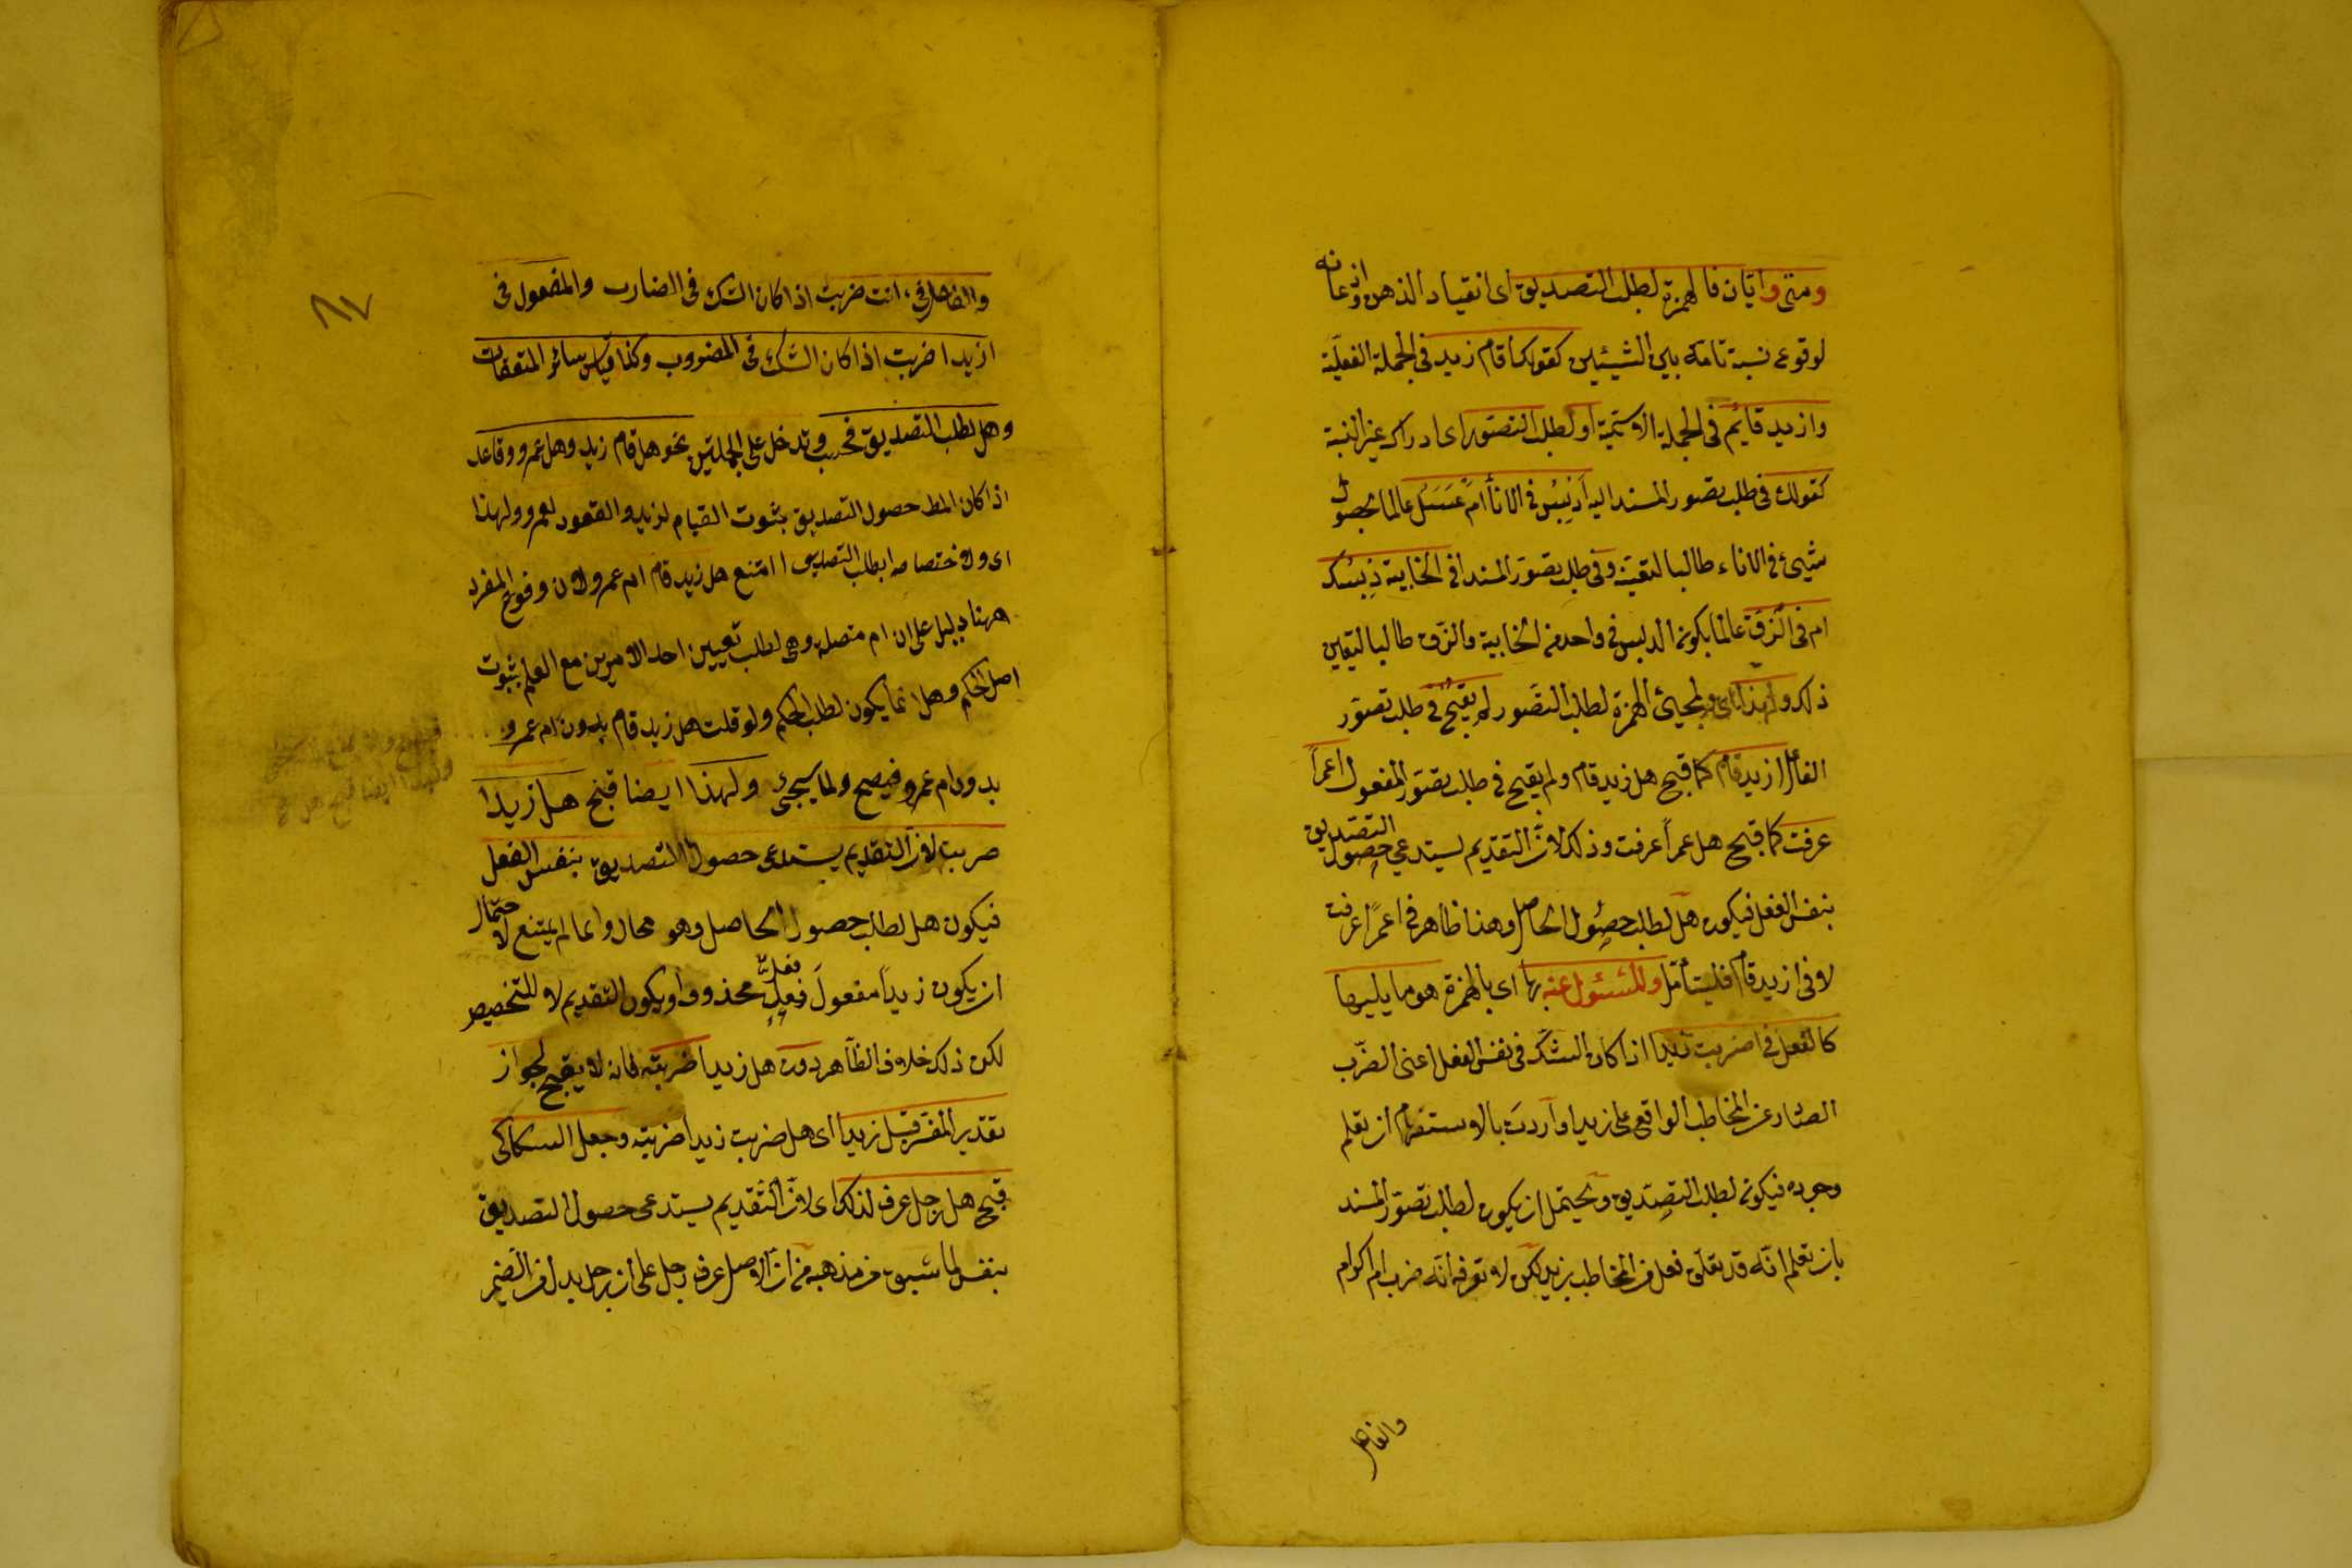 ومتى وايّان فالهمزة لطلب التصديق اى انقياد الذهن واذعانه
لوقوع نسبة تامة بين الشيئين كقولك اقام زيد فى الجملة الفعليّة
وازيد قايم فى الجملة الاسميّة او لطلب التصوّر اى ادراك غير النسبة
كقولك فى طلب تصور المسند اليه اَدبسٌ فى الاناأ ام عَسَلٌ عالما بحصول
شيئ فى الاناء طالبا لتعينه وفى طلب تصوّر المسند افى الخابية دبسك
ام فى الزّقّ عالما بكون الدبس فى واحد من الخابية والزّق طالبا لتعيين
ذلك ولهذا اى ولمجيئ الهمزة لطلب التصّور لم يقبح فى طلب تصوّر
الفاعل ازيد قام كما قبح هل زيد قام ولم يقبح فى طلب تصوّر المفعول اعمراً
عرفت كما قبح هل عمراً عرفت وذلك لانّ التقديم يستدعي حصول التصديق
بنفس الفعل فيكون هل لطلب حصُول الحاصل وهذا ظاهر فى اعمرًا عرفت
لا فى ازيد قام فليتأمّل والمسئول عنه بها اى بالهمزة هو ما يليها
كالفعل فى اضربت زيدا اذا كان الشكّ فى نفس الفعل اعنى الضّرب
الصّادر عن المخاطب الواقع على زيد اواردت بالاستفهام ان تعلم
وجوده فيكون لطلب التصديق ويحتمل ان يكون لطلب تصوّر المسند
بان تعلم انّه قد تعلّق فعل من المخاطب بزيد لكن لا تعرف انّه ضرب ام اكرام
والفاعل
والفاعل فى ءانت ضربت اذا كان الشك فى الضارب والمفعول فى
ازيدا ضربت اذا كان الشك فى المضروب وكذا قياس سائر المتعلقات
وهل لطلب التصديق فحسب وتدخل على الجملتين نحو هل قام زيد وهل عمرو قاعد
اذا كان المط حصول التصديق بثبوت القيام لزيد والقعود لعمرو ولهذا
اى ولاختصاصها بطلب التصديق امتنع هل زيد قام ام عمرو لان وقوع المفرد
ههنا دليل على ان ام متصله وهى لطلب تعيين احد الامرين مع العلم بثبوت
اصل الحكم وهل انما يكون لطلب الحكم ولو قلت هل زيد قام بدون ام عمرو
بدون ام عمرو فيصح ولما سيجئ ولهذا ايضا قبح هل زيدا
ضربت لانّ التقديم يستدعى حصول التصديق بنفس الفعل
فيكون هل لطلب حصول الحاصل وهو محال وانما لم يمتنع لاحتمال
ان يكون زيداً مفعولَ فعلٍ محذوف او يكون التقديم لا للتخصيص
لكن ذلك خلاف الظّاهر دون هل زيدا ضربته فانه لا يقبح لجواز
تقدير المفسّر قبل زيدا اى هل ضربت زيدا ضربته وجعل السكاكى
قبح هل رجل عرف لذلك اى لانّ التّقديم يستدعى حصول التصديق
بنفس لما سبق من مذهبه من انّ الاصل عرف رجل على ان رجل بدل من الضمير